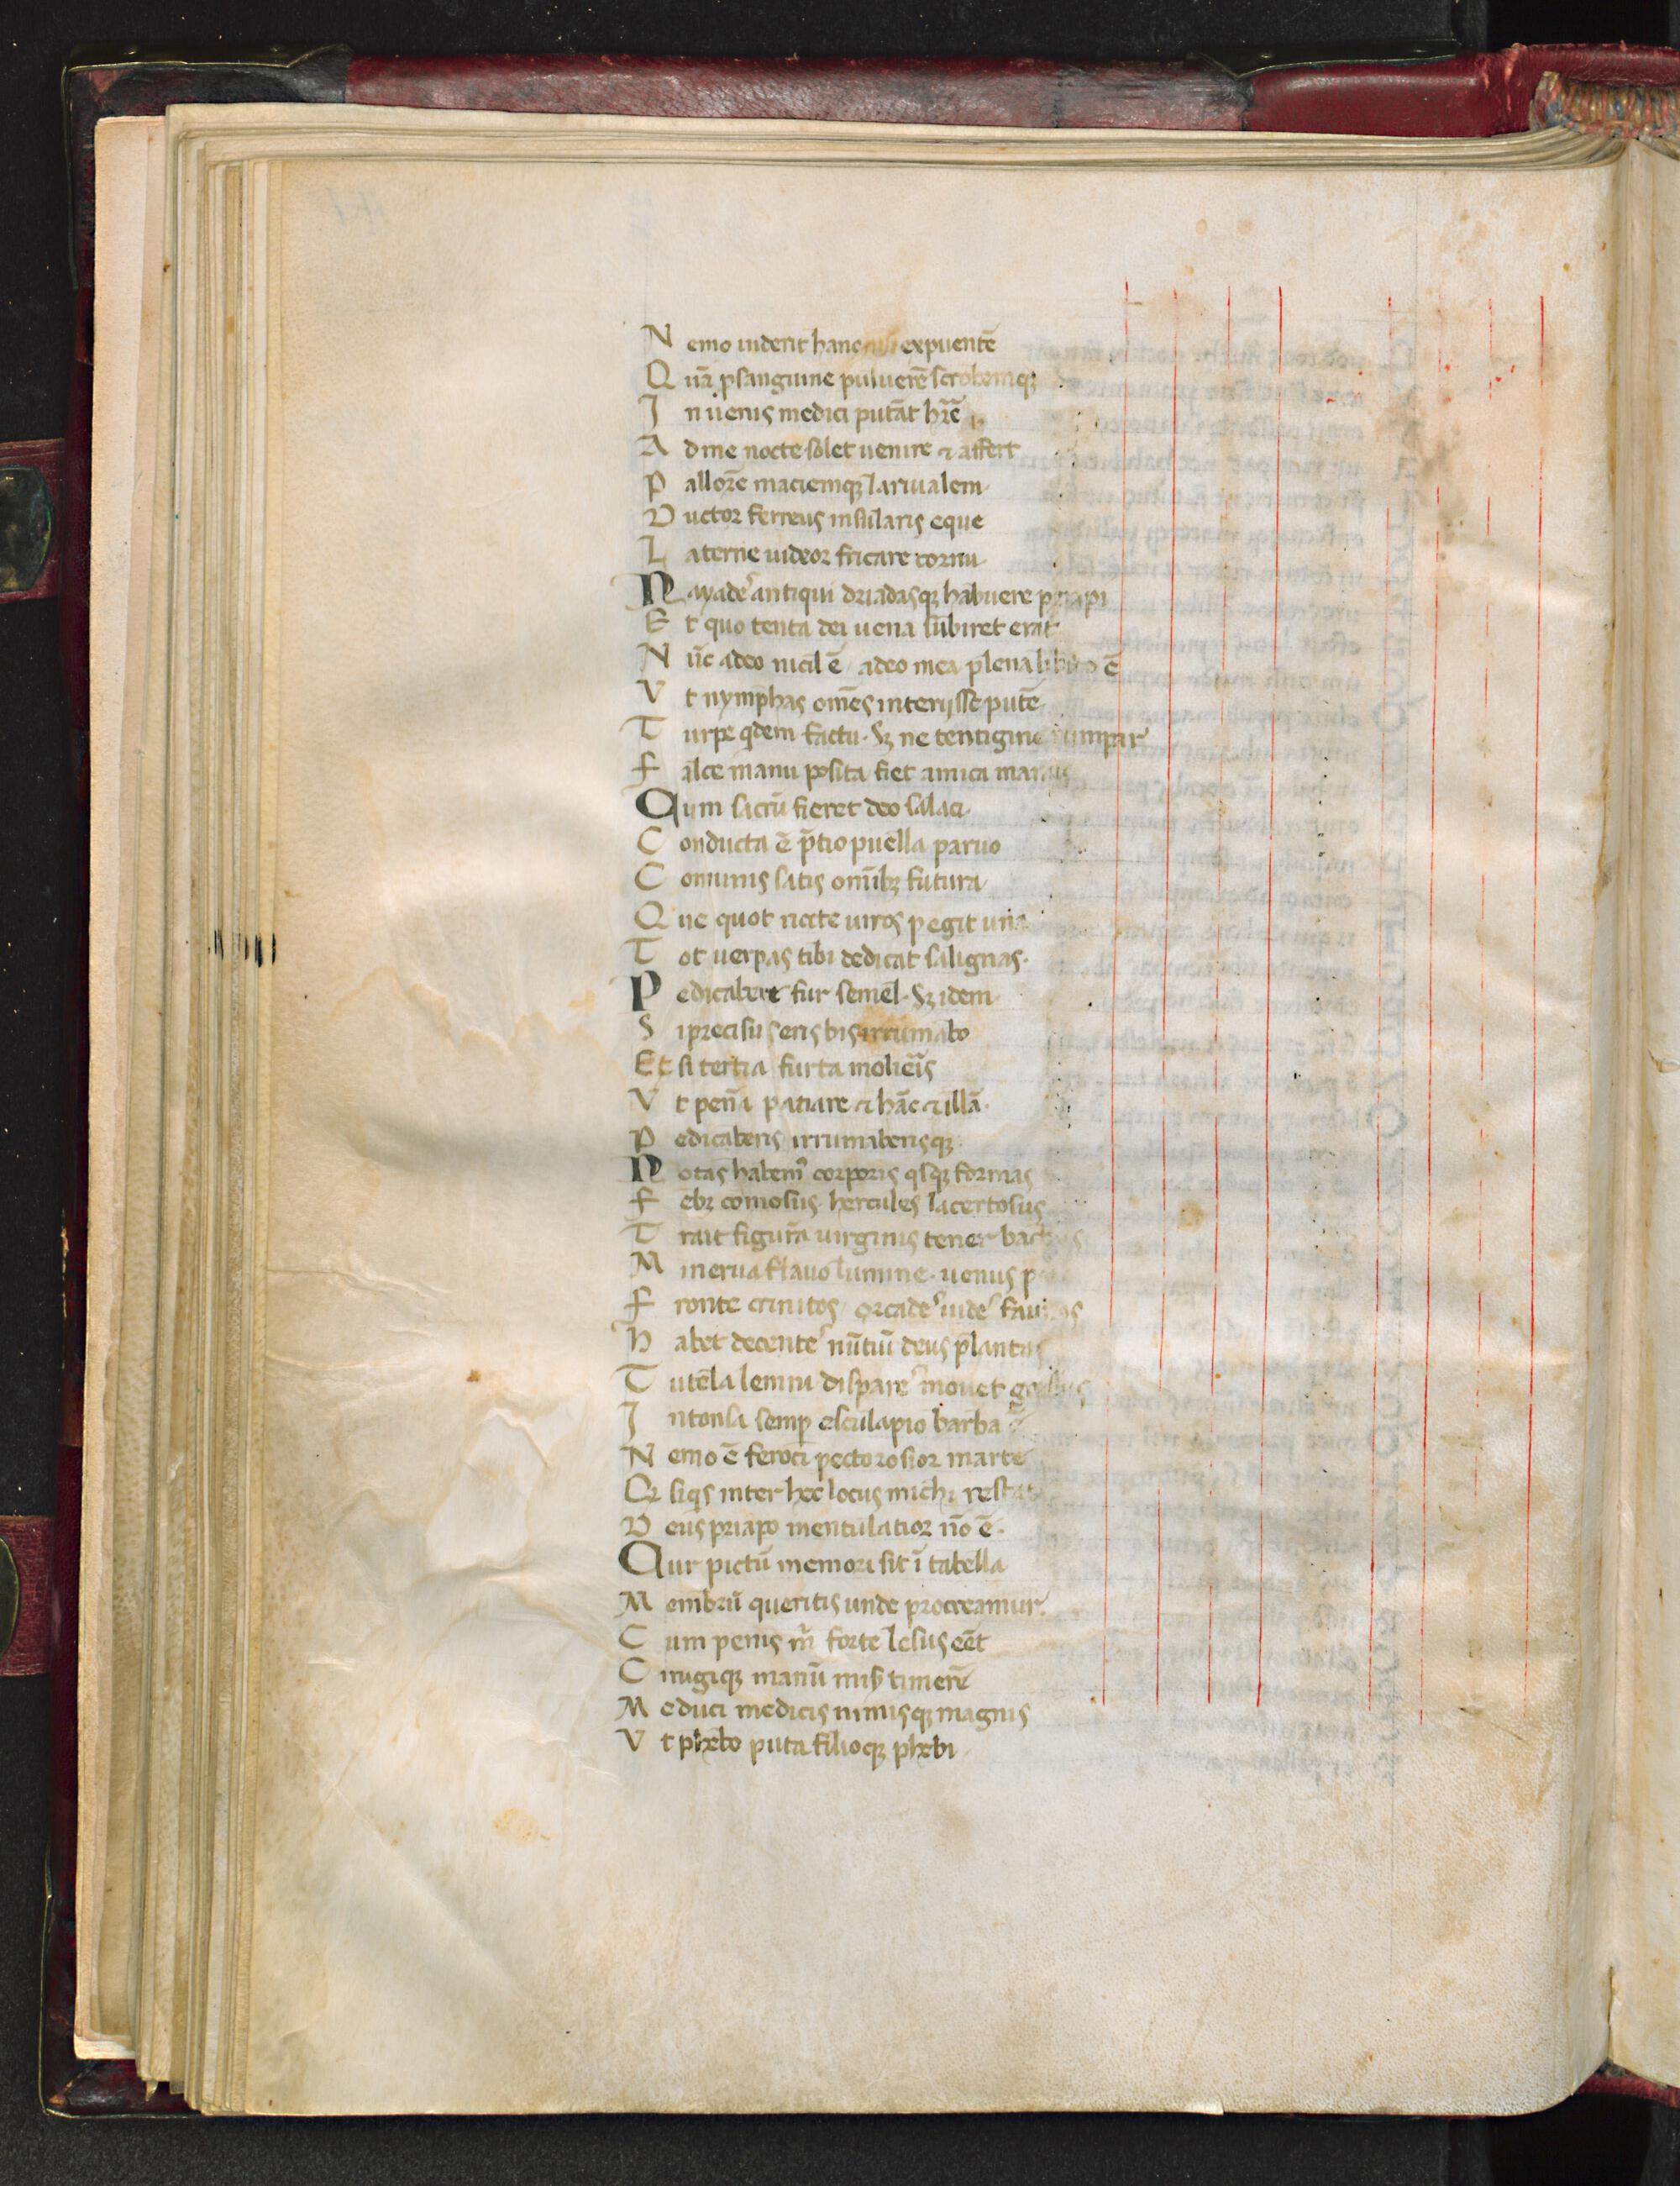 Nemo uiderit hanc expuentē
Quā ꝑ sanguine puluerē scrobemqꝫ
Jn uenis medici putāt hr̄e
Ad me nocte solet uenire ⁊ affert
Pallorē maciemqꝫ laruialem
Ductor ferreus insularis eque
Laterne uideor fricare cornu
Nayadeˢ antiqui driadasqꝫ habuere priapi
Et quo tenta dei uena subiret erat
Nūc adeo nicil ē / adeo mea plena libido ē
Vt nymphas om̄es interijsse putē
Turpe qdem factu · sꝫ ne tentigine rumpar
Falce manu posita fiet amica manus
Qum sacrū fieret deo salaci
Conducta ē p̄tio puella paruo
Comunis satis omībꝫ futura
Que quot nocte uiros ꝑegit una
Tot uerpas tibi dedicat salignas·
Pedicabere fur semel· sꝫ idem
Si precisus eris bis irrumabo
Et si tertia furta molieris
Vt penā patiare ⁊ hāc ⁊ illā·
Pedicaberis irrumaberisqꝫ
Notas habemꝰ corporis qsqꝫ formas
Febꝫ comosus hercules lacertosus
Trait figurā uirginis tener bachus
Minerua flauo lumine· uenus p
Fronte crinitos orcadeˢ uideˢ faunos
Habet decenteˢ nūtiū deus plantas
Tutela lemni dispareˢ mouet gressus
Jntonsa semꝑ esculapio barba ē
Nemo ē feroci pectorosior marte
Qꝫ siqs inter hec locus michi restat
Deus priapo mentulatior nō ē·
Qur pictū memori sit ī tabella
Membrū queritis unde procreamur·
Cum penis m̄ forte lesus eēt
Cirugiqꝫ manū misꝰ timerē
Me duci medicis nimisqꝫ magnis
Vt phebo puta filioqꝫ phebi